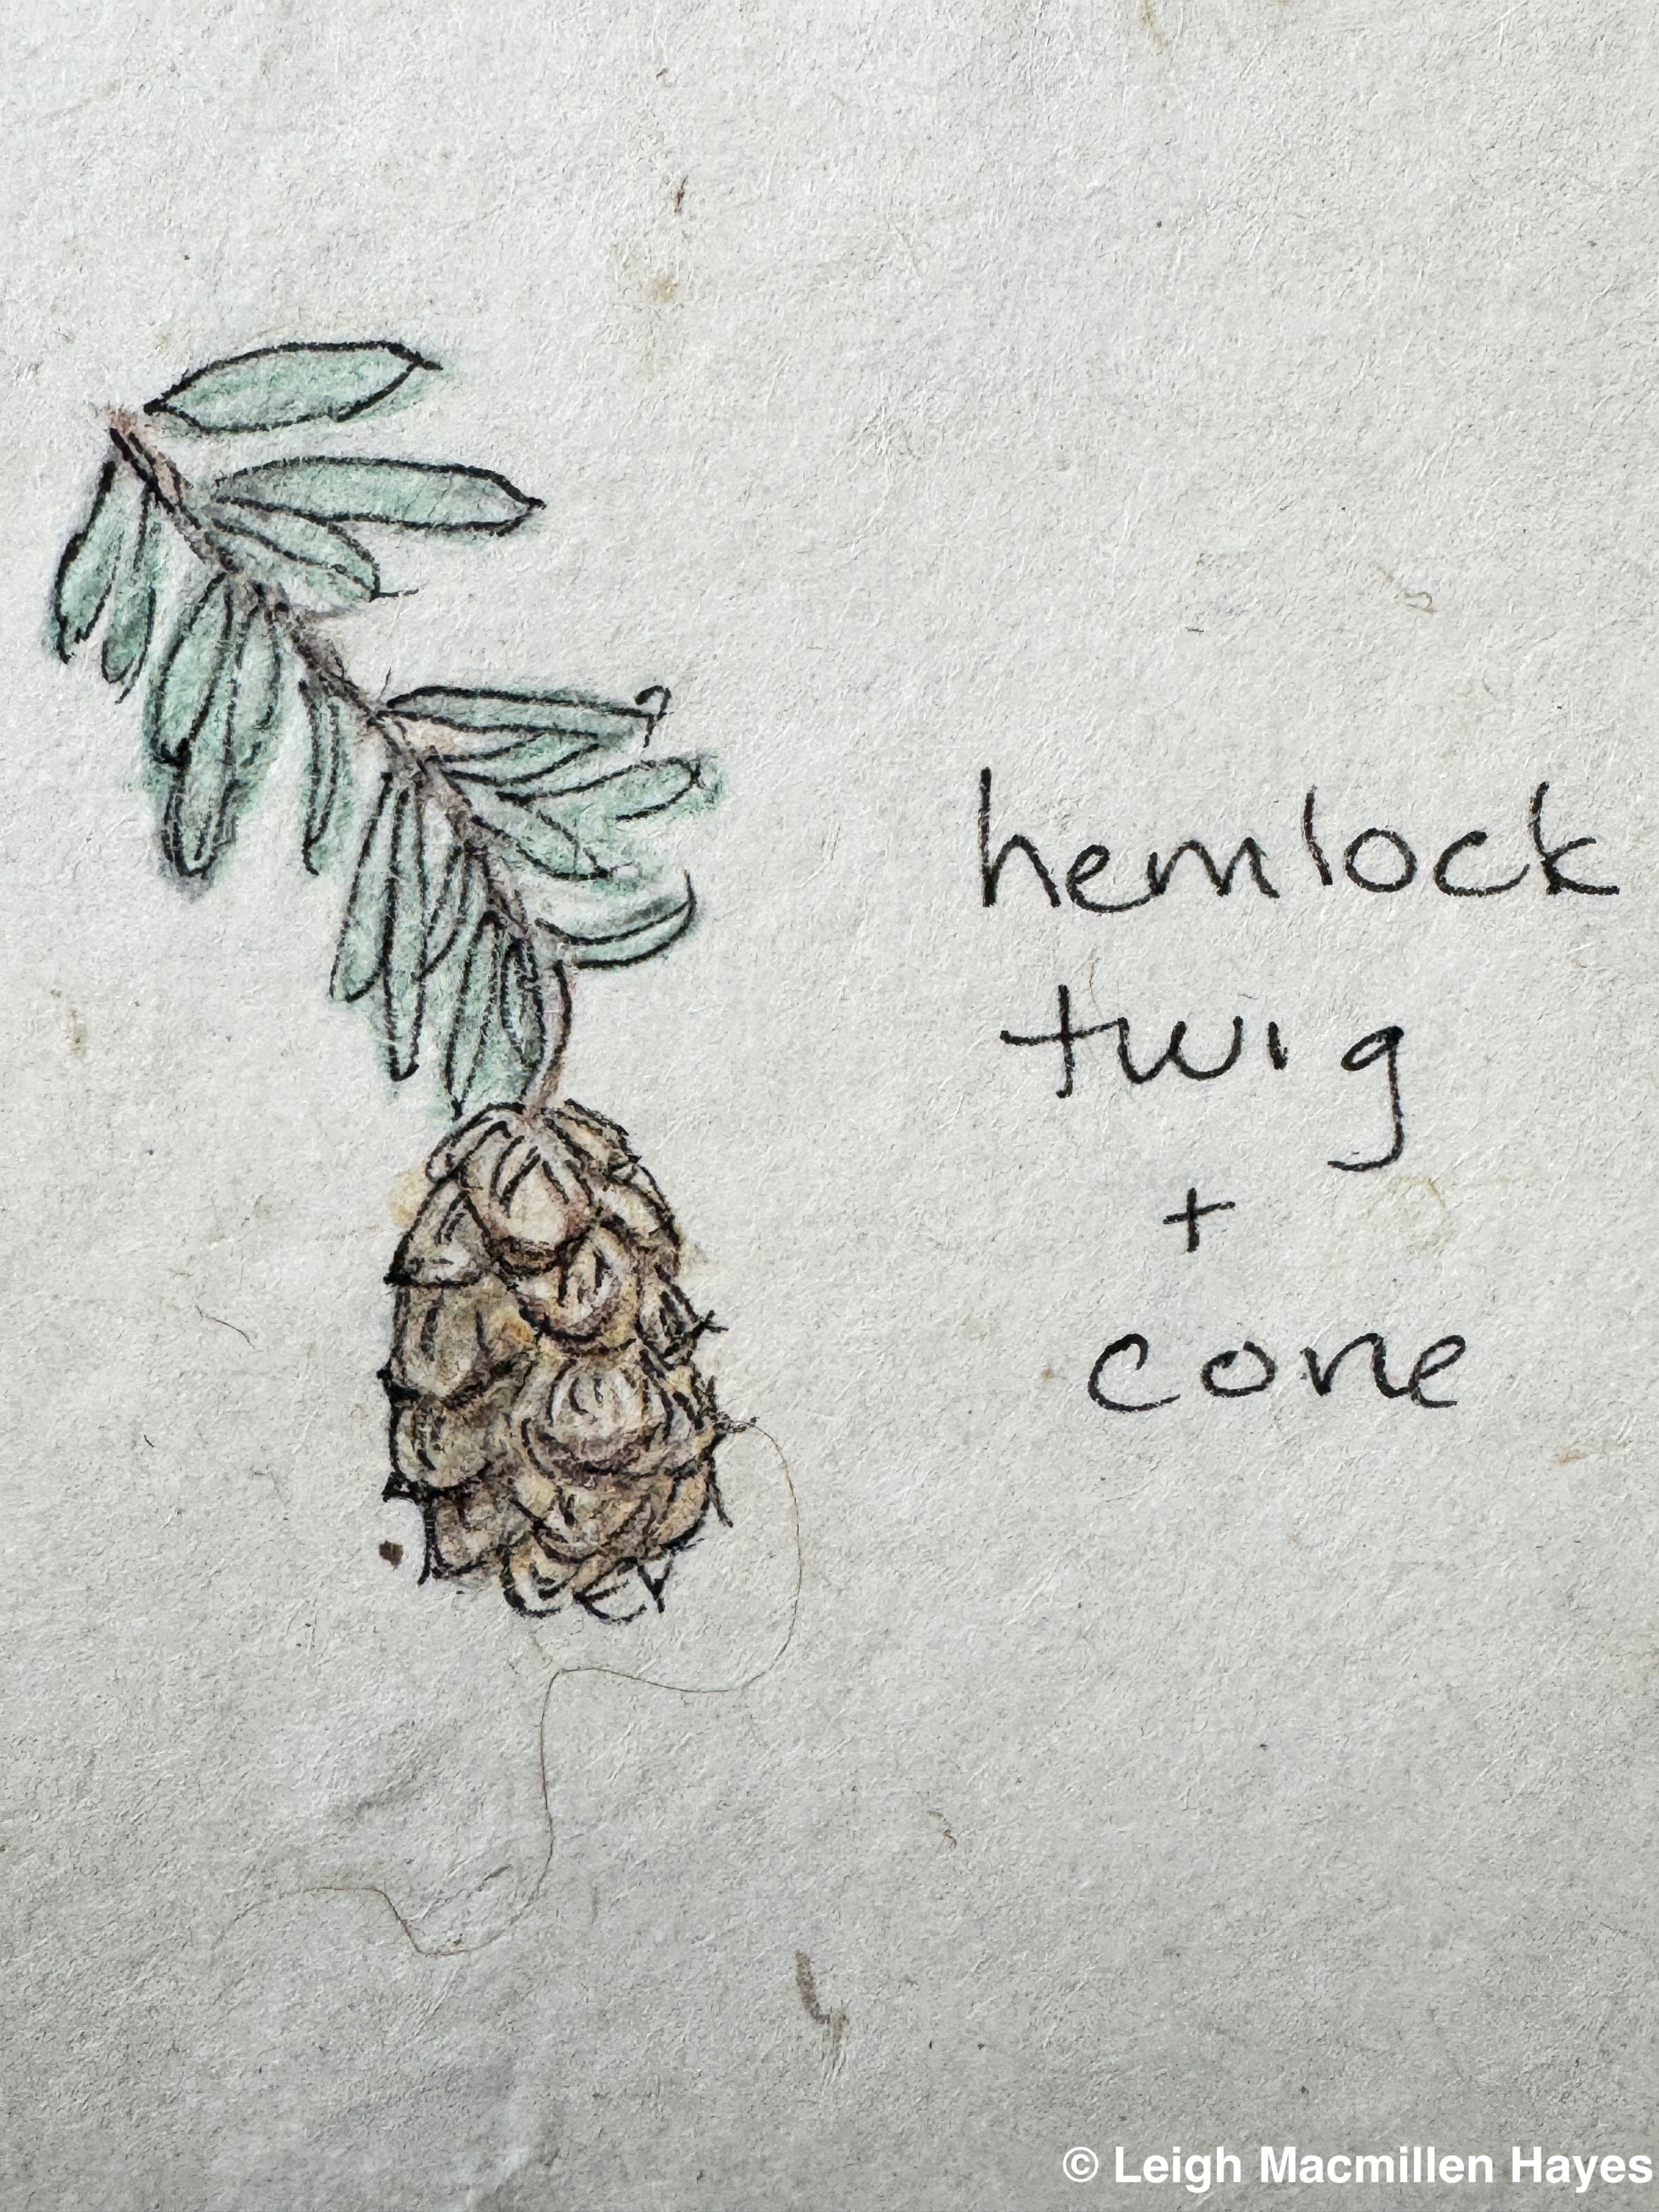 hemlock
twig
+
cone
© Leigh Macmillen Hayes